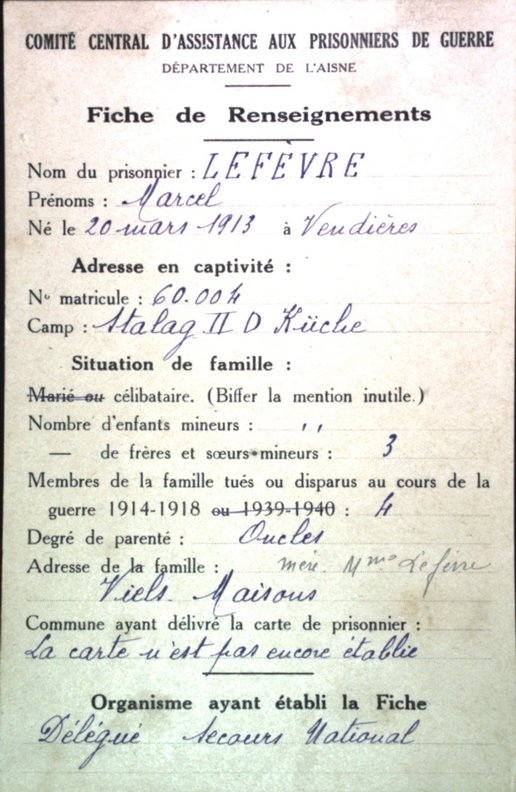 COMITÉ CENTRAL D'ASSISTANCE AUX PRISONNIERS DE GUERRE
DÉPARTEMENT DE L'AISNE
Fiche de Renseignements
Nom du prisonnier : LEFÈVRE
Prénoms : Marcel
Né le 20 mars 1913 à Vendières
Adresse en captivité :
No matricule : 60.004
Camp : Stalag II D Küche
Situation de famille :
Marié ou célibataire. (Biffer la mention inutile.)
Nombre d'enfants mineurs : ''
— de frères et sœurs mineurs : 3
Membres de la famille tués ou disparus au cours de la
guerre 1914-1918 ou 1939-1940 : 4
Degré de parenté : Oncles
Adresse de la famille : mère. Mme Lefèvre
Viels-Maisons
Commune ayant délivré la carte de prisonnier :
La carte n'est pas encore établie
Organisme ayant établi la Fiche
Délégué Secours National